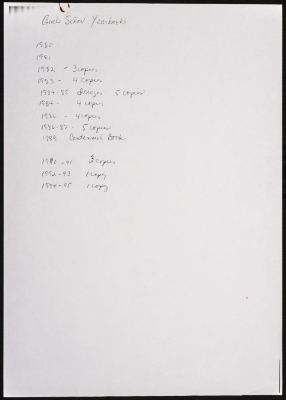 Girls School Yearbooks
1980
1981
1982 - 3 copies
1983 - 4 copies
1984-85 5 copies
1984 - 4 copies
1986 - 4 copies
1986-87 - 5 copies
1989 Centennial Book
1990-91 2 copies
1992-93 1 copy
1994-95 1 copy